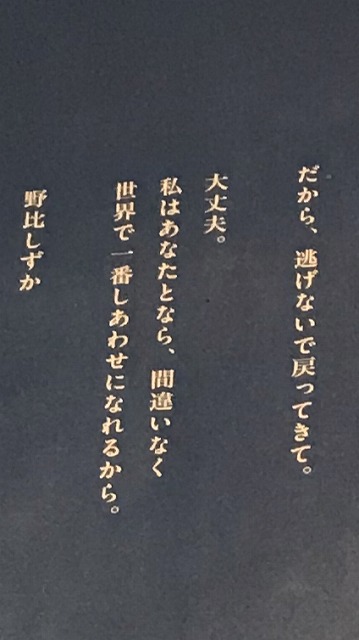 だから、逃げないで戻ってきて。
大丈夫。
私はあなたとなら、間違いなく
世界で一番しあわせになれるから。
野比しずか